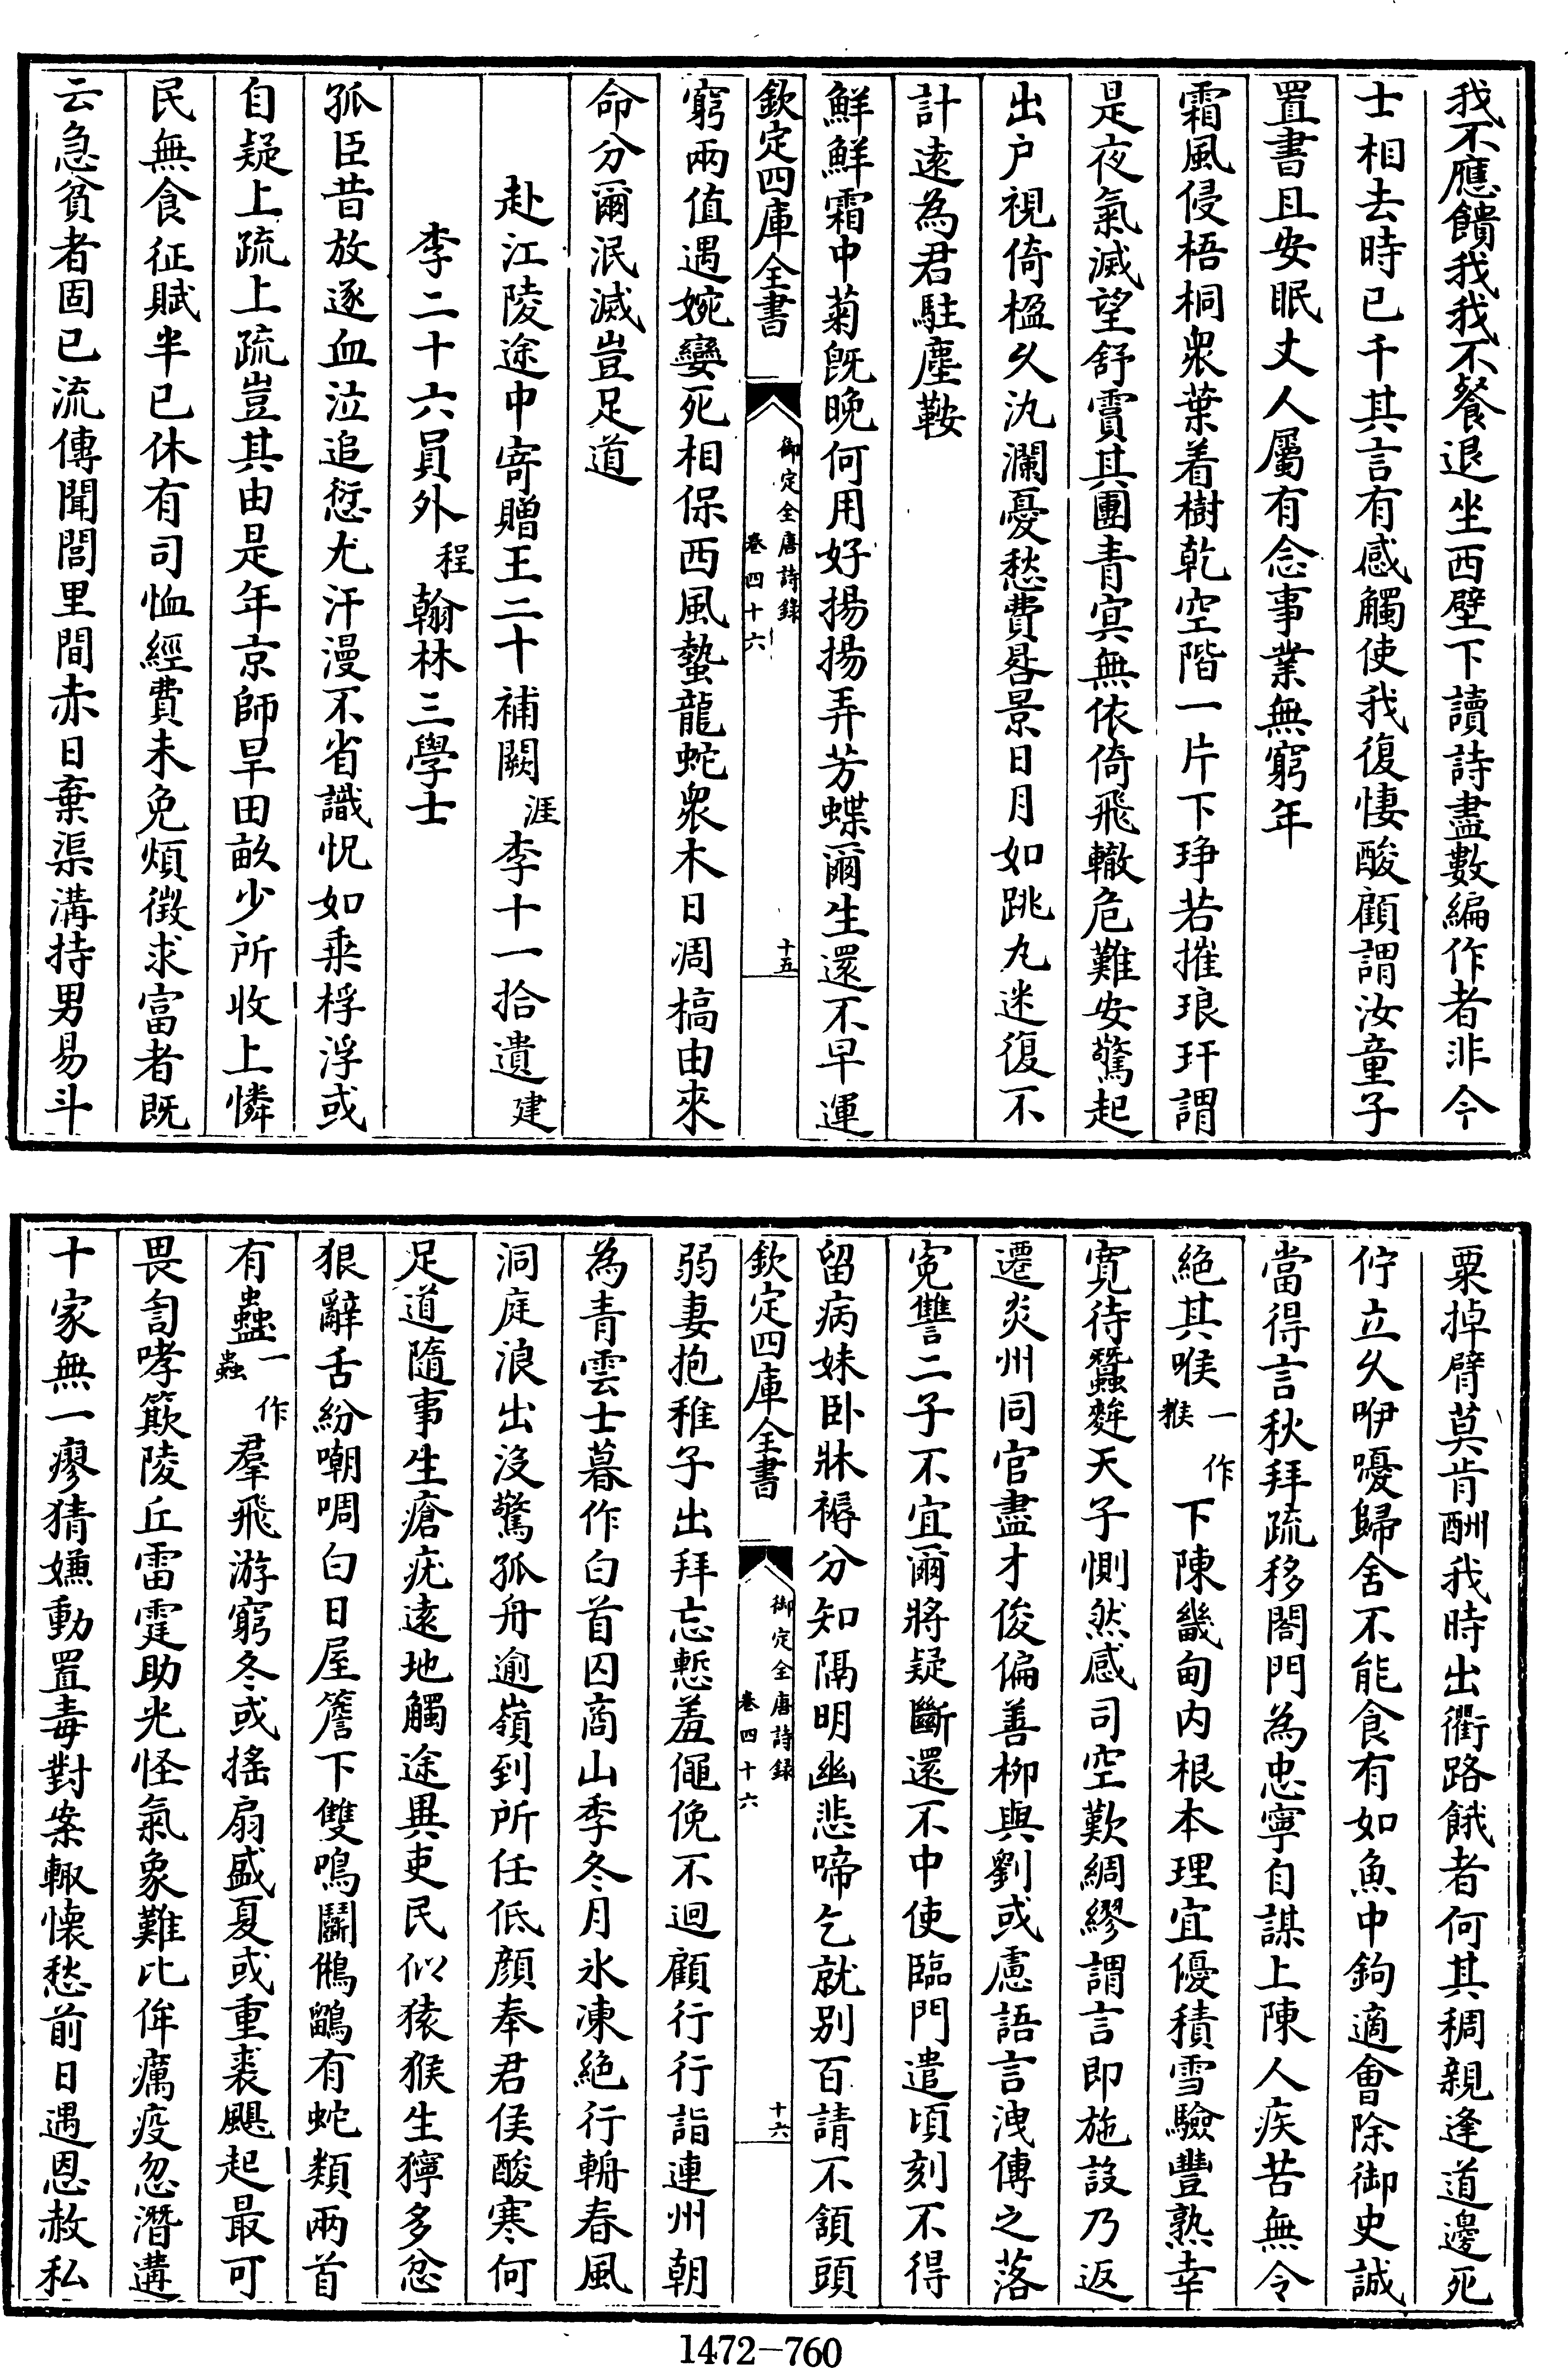 我不應饋我我不餐退坐西壁下讀詩盡數編作者非今
士相去時已千其言有感觸使我復悽酸顧謂汝童子
置書且安眠丈人屬有念事業無窮年
霜風侵梧桐衆葉着樹乾空階一片下琤若摧琅玕謂
是夜氣滅望舒霣其團青冥無依倚飛轍危難安驚起
出户視倚楹久汍瀾憂愁費晷景日月如跳丸迷復不
計逺為君駐塵鞍
鮮鮮霜中菊旣晚何用好揚揚弄芳蝶爾生還不早運
欽定四庫全書
御定全唐詩錄
卷四十六
十五
窮兩值遇婉孌死相保西風蟄龍蛇衆木日凋槁由來
命分爾泯滅豈足道
赴江陵途中寄贈王二十補闕涯李十一拾遺建
李二十六員外程翰林三學士
孤臣昔放逐血泣追愆尤汗漫不省識怳如乘桴浮或
自疑上疏上疏豈其由是年京師旱田畝少所收上憐
民無食征賦半已休有司恤經費未免煩徵求富者既
云急貧者固已流傳聞閭里間赤日棄渠溝持男易斗
粟掉臂莫肯酬我時出衢路餓者何其稠親逢道邊死
佇立久咿嚘歸舍不能食有如魚中鉤適會除御史誠
當得言秋拜疏移閤門為忠寧自謀上陳人疾苦無令
絶其喉一作猴下陳畿甸内根本理宜優積雪驗豐熟幸
寛待蠶麰天子惻然感司空歎綢繆謂言即施設乃返
遷炎州同官盡才俊偏善柳與劉或慮語言洩傳之落
寃讐二子不宜爾將疑斷還不中使臨門遣頃刻不得
留病妹卧牀褥分知隔明幽悲啼乞就别百請不頷頭
欽定四庫全書
御定全唐詩録
卷四十六
十六
弱妻抱稚子出拜忘慙羞僶俛不迴顧行行詣連州朝
為青雲士暮作白首囚商山季冬月氷凍絶行輈春風
洞庭浪出没驚孤舟逾嶺到所任低顔奉君侯酸寒何
足道隨事生瘡疣逺地觸途異吏民似猿猴生獰多忿
狠辭舌紛嘲啁白日屋簷下雙鳴鬬鵂鶹有蛇類兩首
有蠱一作蟲羣飛游窮冬或搖扇盛夏或重裘颶起最可
畏訇哮簸陵丘雷霆助光怪氣象難比侔癘疫忽潛遘
十家無一瘳猜嫌動置毒對案輒懷愁前日遇恩赦私
1472-760